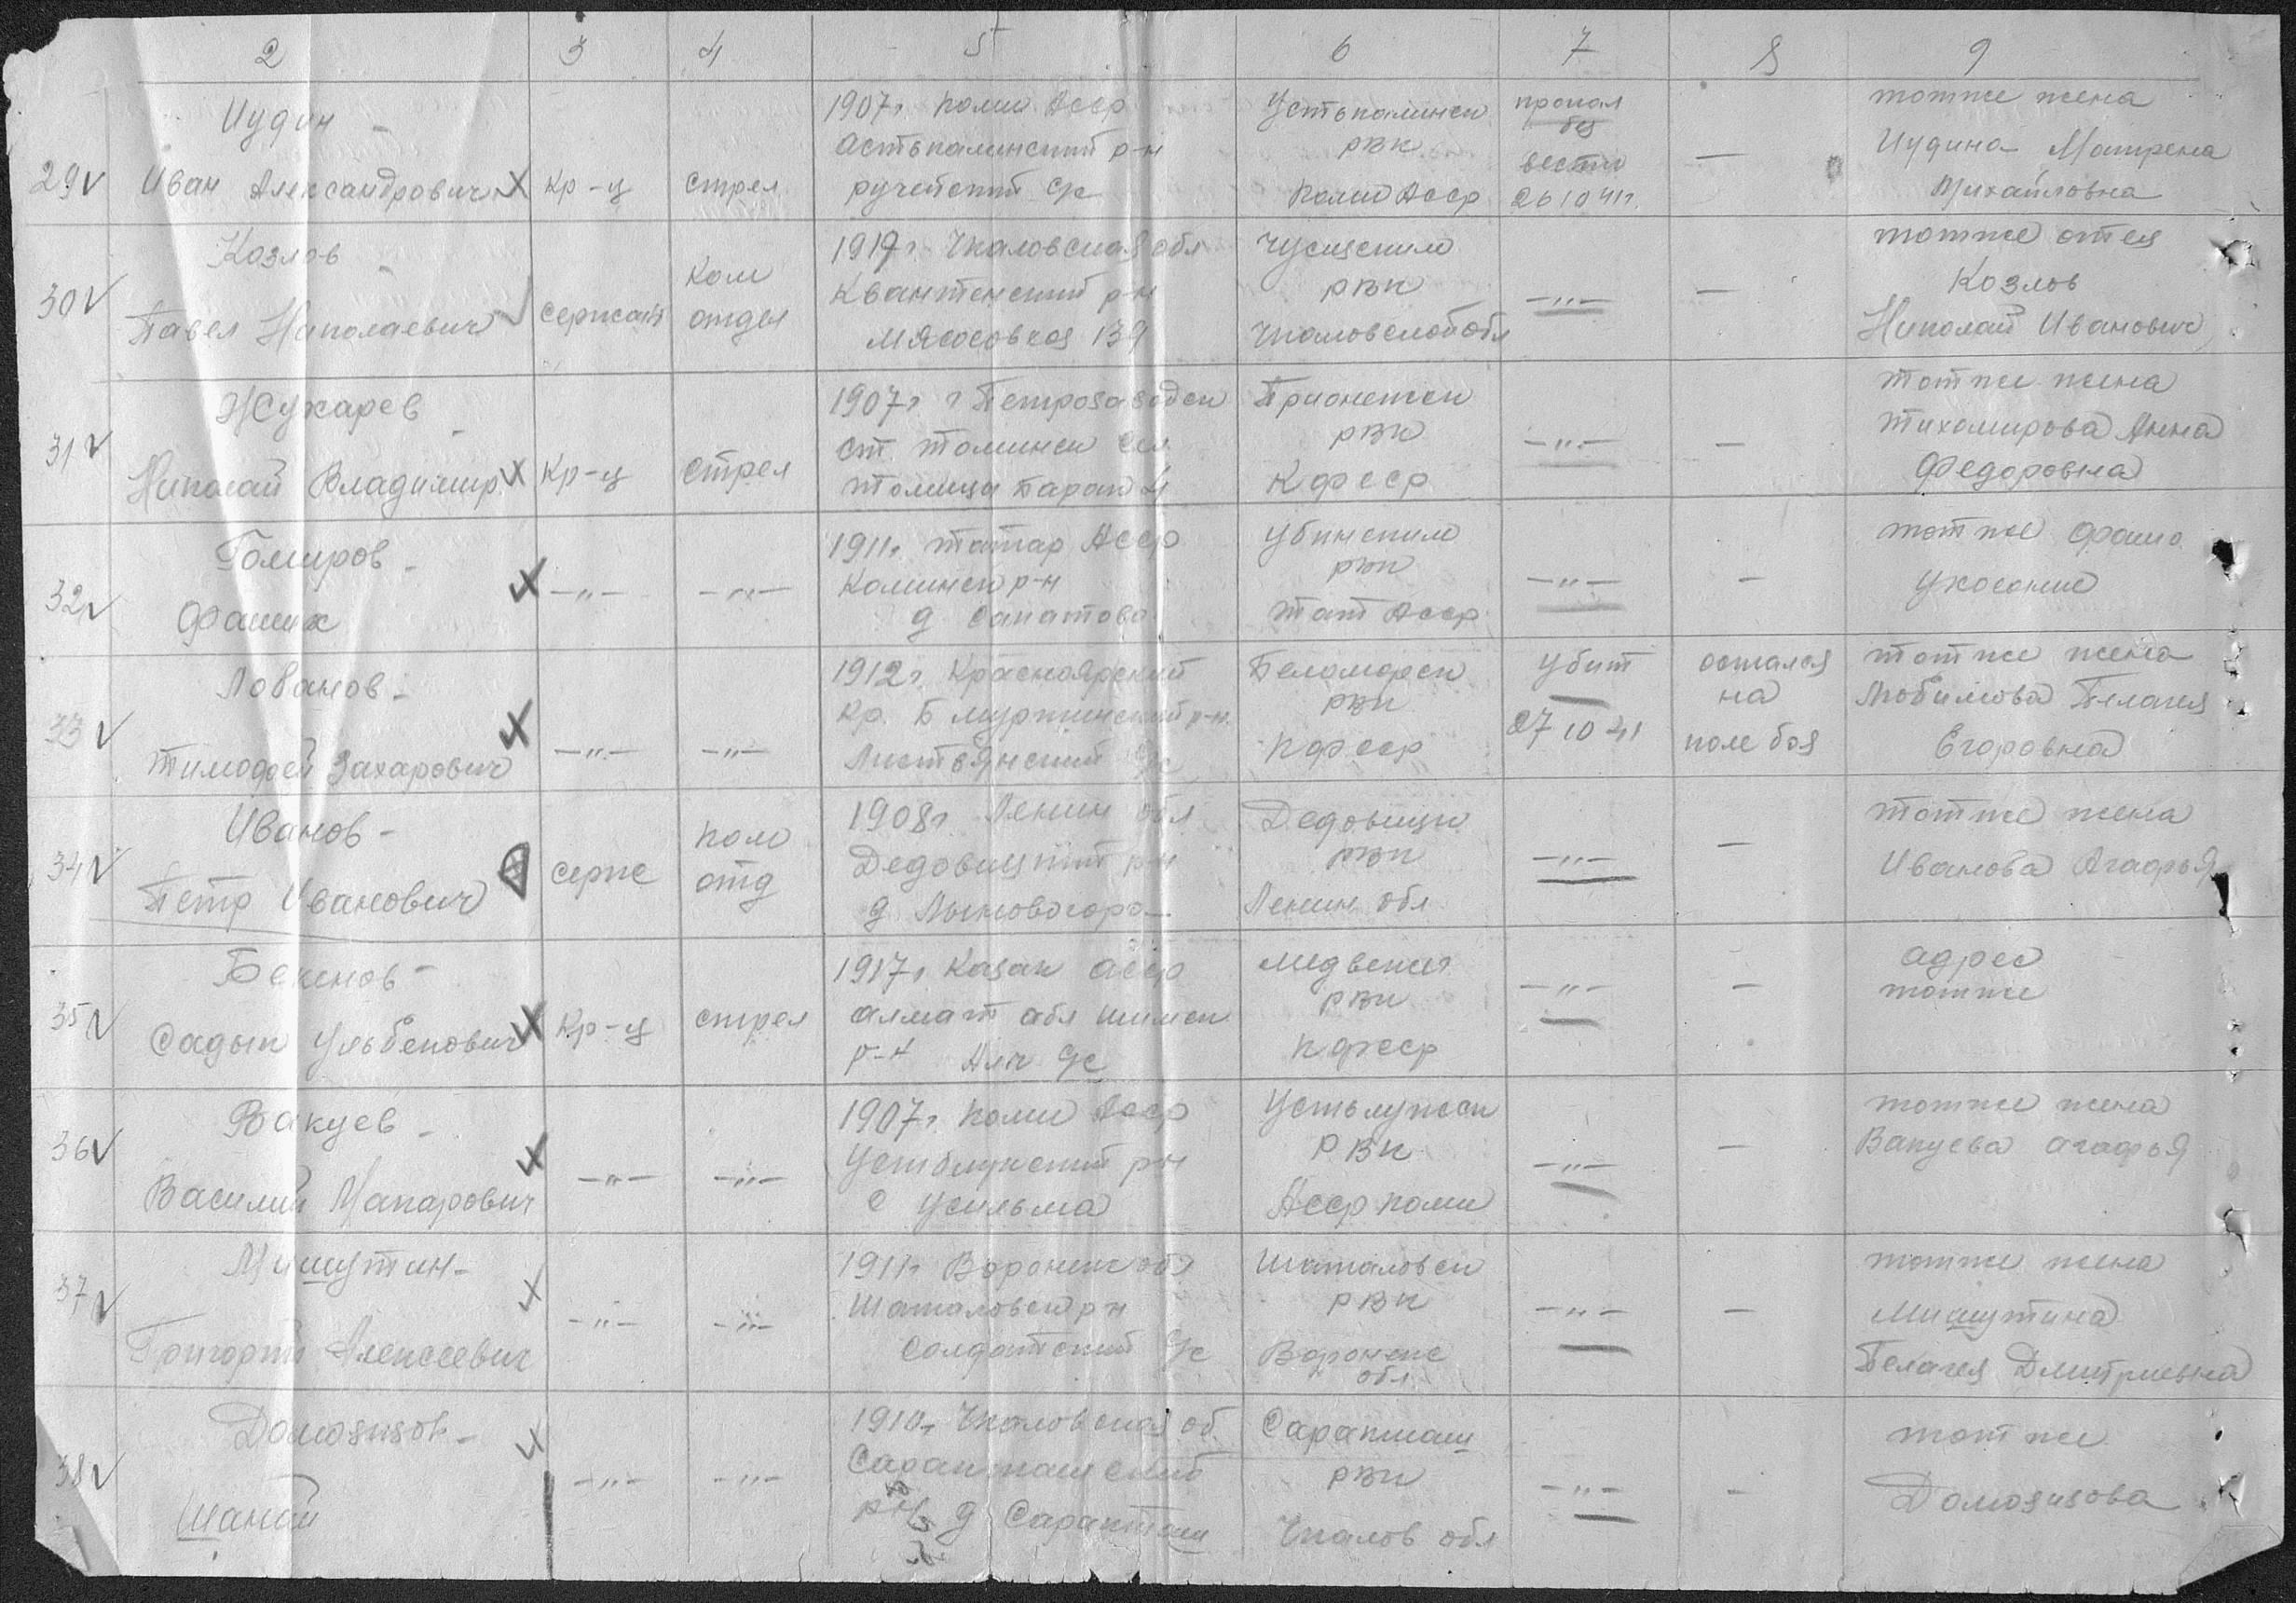 2 3 4 5 6 7 8 9
29
Иудин
Иван Александрович
кр-ц
стрел
1907г. Коми Асср
Астькаминский р-н
ручейский с/с
Устькаминск
рвк
Коми Асср
пропал
без
вести
26 10 41г.
—
тотже жена
Иудина Матрена
Михайловна
30
Козлов
Павел Николаевич
сержант
Ком
отдел
1919г. Чкаловская обл
Квантенский р-н
Мясосовхоз 139
рвк
Чкаловской обл
—„—
—
тотже отец
Козлов
Николай Иванович
31
Жухарев
Николай Владимир.
Кр-ц
стрел
1907г г Петрозаводск
ст. Томинск
Томицы барак 4
Прионежск
рвк
Кфсср
—„—
—
тотже жена
Тихомирова Анна
Федоровна
32
Гомиров
—„—
—„—
1911г. татар Асср
Коминск р-н
д Сапатово
Убинским
рвк
тат Асср
—„—
—
тотже
33
Лобанов
Тимофей Захарович
—„—
—„—
1912г. Красноярский
кр. Б муртинский р-н.
Листьянский с/с
Беломорск
рвк
Кфсср
Убит
27 10 41
остался
на
поле боя
тотже жена
Любимова Пелагея
Егоровна
34
Иванов
Петр Иванович
серж
ком
отд
1908г. Ленин обл
Дедовицкий р-н
д.
Дедовицк
рвк
Ленин обл
—„—
—
тотже жена
Иванова Агафья
35
Бекенов
Садык Ульбекович
Кр-ц
стрел
1917г. Казак асср
алмат обл
р-н с/с
медвежья
рвк
Кфсср
—„—
—
адрес
тотже
36
Вакуев
Василий Макарович
—„—
—„—
1907г. Коми Асср
р-н
с Усильма
рвк
Асср Коми
—„—
—
тотже жена
Вакуева агафья
37
Мишутин
Григорий Алексеевич
—„—
—„—
1911г. Воронеж обл
Шаталовск р-н
Солдатский с/с
Шаталовск
рвк
Воронеж
обл.
—„—
—
тотже жена
Мишутина
Пелагея Дмитриевна
38
Домозизов
Шакай
—„—
—„—
1910г. Чкаловская об.
р-н д Саракташ
Саракташ
рвк
Чкалов обл
—„—
—
тотже
Домозизова